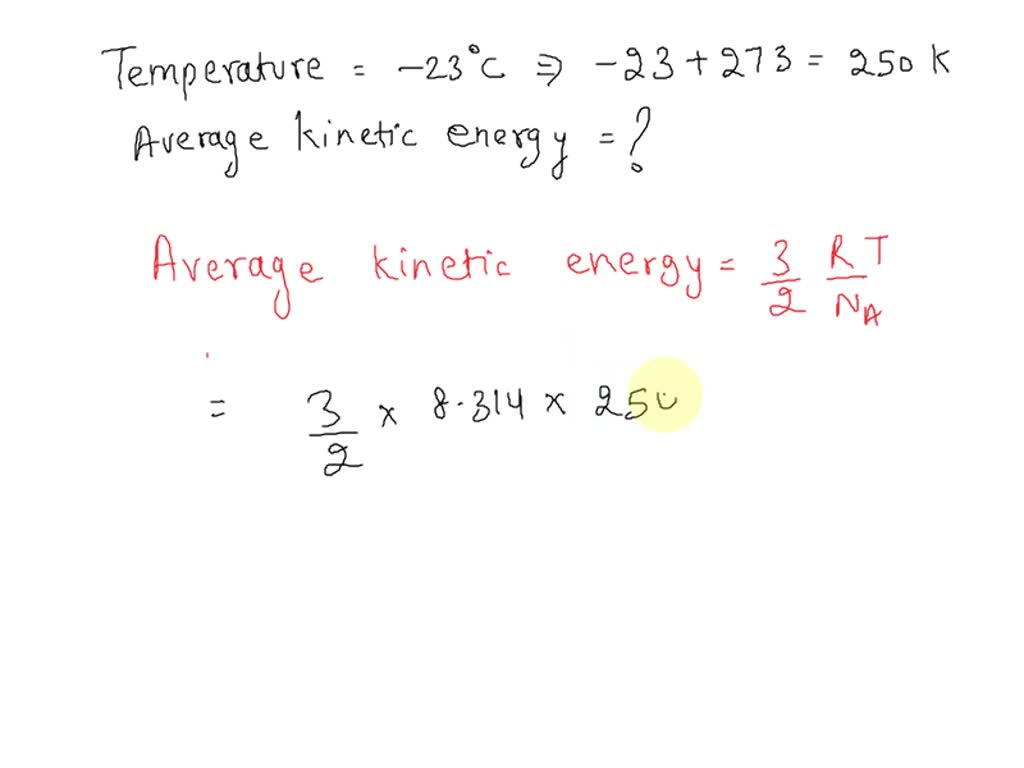 Temperature = -23°C ⇒ -23 + 273 = 250 K
Average kinetic energy = ?
Average kinetic energy = 3/2 RT/NA
= 3/2 × 8.314 × 250